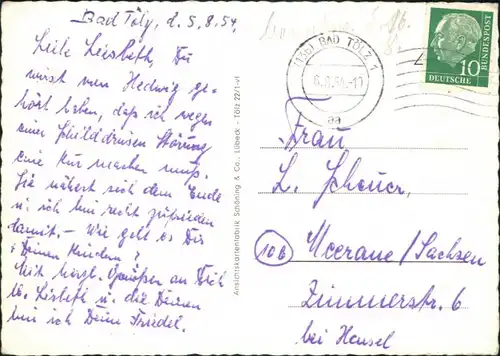 Bad Tölz, d. 5.8.54.
Liebe Liesbeth, Du
wirst von Hedwig ge-
hört haben, daß ich wegen
einer Schilddrüsen Störung
eine Kur machen muß.
Sie nähert sich dem Ende
u. ich bin recht zufrieden
damit. - Wie geht es Dir
u. Deinen Kindern?
Mit herzl. Grüßen an Dich
lb. Lisbeth u. die Deinen
bin ich Deine Friedel.
Ansichtskartenfabrik Schöning & Co., Lübeck - Tölz 22/1-vt
(13b) BAD TÖLZ 1
6.8.54.-17
aa
DEUTSCHE BUNDESPOST
10
Frau
L. Scheuer,
10b Meerane/Sachsen
Zimmerstr. 6
bei Hensel